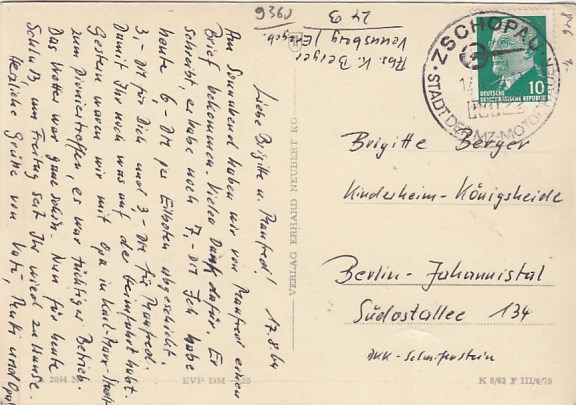 Abs. K. Berger
Venusberg / Erzgeb
24 B
9369
17.8.64
Liebe Brigitte u. Manfred!
Am Sonnabend haben wir von Manfred einen
Brief bekommen. Vielen Dank dafür. Er
schreibt, er habe noch 7,-DM Ich habe
heute 6-DM per Eilboten abgeschickt,
3-DM für Dich und 3,-DM für Manfred.
Damit Ihr noch was auf der Heimfahrt habt.
Gestern waren wir mit Opa in Karl-Marx-Stadt
zum Pioniertreffen, es war tüchtiger Betrieb.
Das Wetter war ganz schön. Nun für heute
Schluß, am Freitag seit Ihr wieder zu Hause.
Herzliche Grüße von Vati, Mutti und Opa
VERLAG ERHARD NEUBERT KG
ZSCHOPAU
STADT DER MZ-MOTORRÄDER
10
DEUTSCHE
DEMOKRATISCHE REPUBLIK
Brigitte Berger
Kinderheim-Königsheide
Berlin-Johannistal
Südostallee 134
DKK-Scharfenstein
EVP DM
K 5/63 F III/6/75